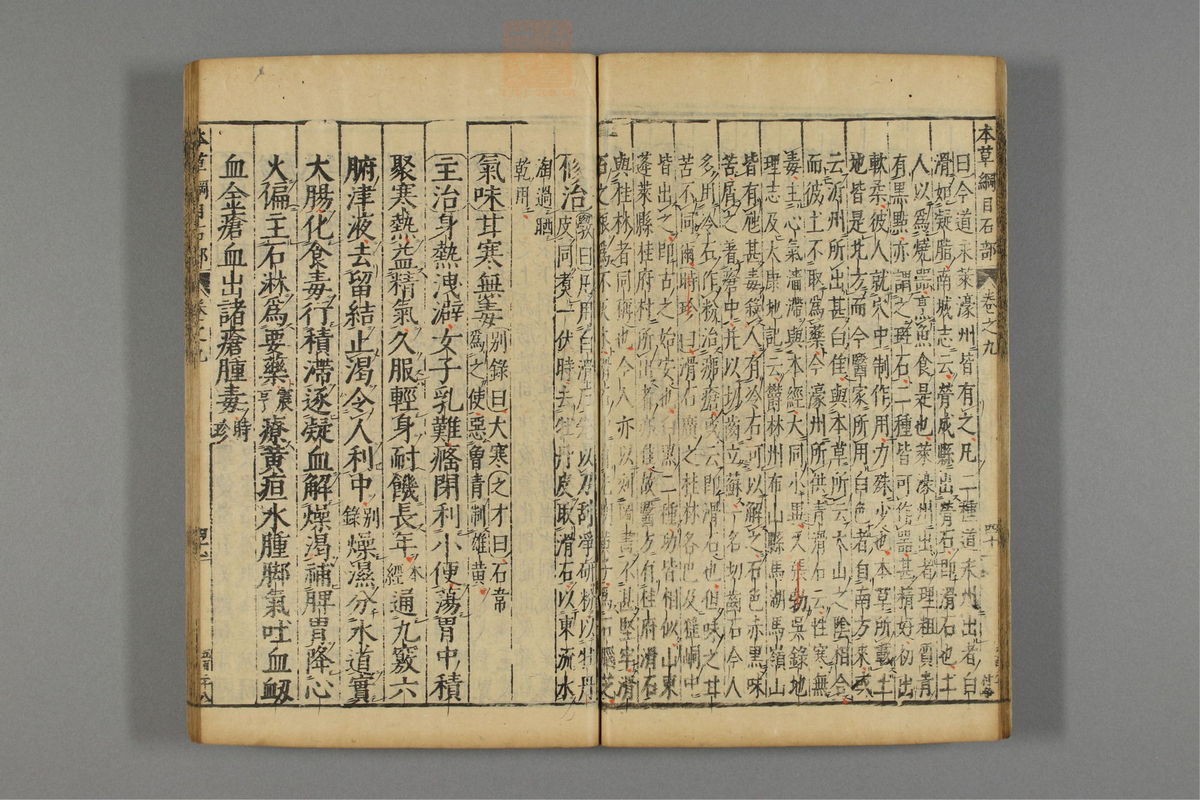 本草綱目石部 卷之九 四十一
曰今道永萊濠州皆有之凡二種道永州出者白
滑如凝脂南城志云膋城縣出膋石即滑石也土
人以爲燒器烹魚食是也萊濠州出者理粗質青
有黑點亦謂之斑石二種皆可作器甚精好初出
軟柔彼人就穴中制作用力殊少也本草所載土
地皆是北方而今醫家所用白色者自南方來或
云沂州所出甚白佳與本草所云太山之陰相合
而彼土不取爲藥今濠州所供青滑石云性寒無
毒主心氣濇滯與本經大同小異又張勃吳錄地
理志及太康地記云鬱林州布山縣馬湖馬嶺山
皆有虺甚毒殺人有冷石可以解之石色赤黑味
苦屑之著瘡中并以切齒立蘇一名切齒石今人
多用冷石作粉治痱瘡或云即滑石也但味之甘
苦不同爾時珍曰滑石廣之桂林各邑及猺峒中
皆出之即古之始安也白黑二種功皆相似山東
蓬萊縣桂府村所出者亦佳故醫方有桂府滑石
與桂林者同稱也今人亦以刻圖書不甚堅牢滑
石之根爲不灰木滑石中有光明黃子爲石腦芝
修治斅曰凡用白滑石先以刀刮淨研粉以牡丹
皮同煮一伏時去牡丹皮取滑石以東流水
淘過晒
乾用
氣味甘寒無毒別錄曰大寒之才曰石韋
爲之使惡曾青制雄黃
主治身熱洩澼女子乳難癃閉利小便蕩胃中積
聚寒熱益精氣久服輕身耐饑長年本經通九竅六
腑津液去留結止渴令人利中別錄燥濕分水道實
大腸化食毒行積滯逐凝血解燥渴補脾胃降心
火偏主石淋爲要藥震亨療黃疸水腫脚氣吐血衂
血金瘡血出諸瘡腫毒時珍
本草綱目石部 卷之九